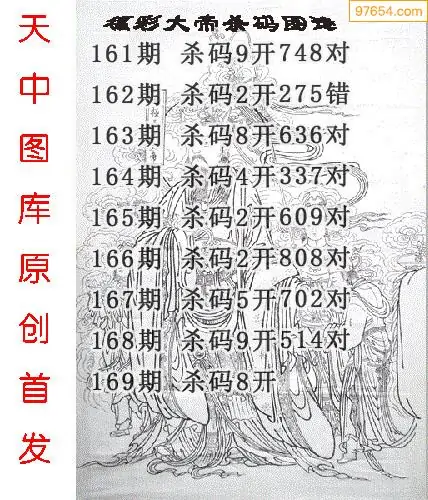 97654.com
福彩大帝杀码图迷
161期 杀码9开748对
162期 杀码2开275错
163期 杀码8开636对
164期 杀码4开337对
165期 杀码2开609对
166期 杀码2开808对
167期 杀码5开702对
168期 杀码9开514对
169期 杀码8开
天中图库原创首发